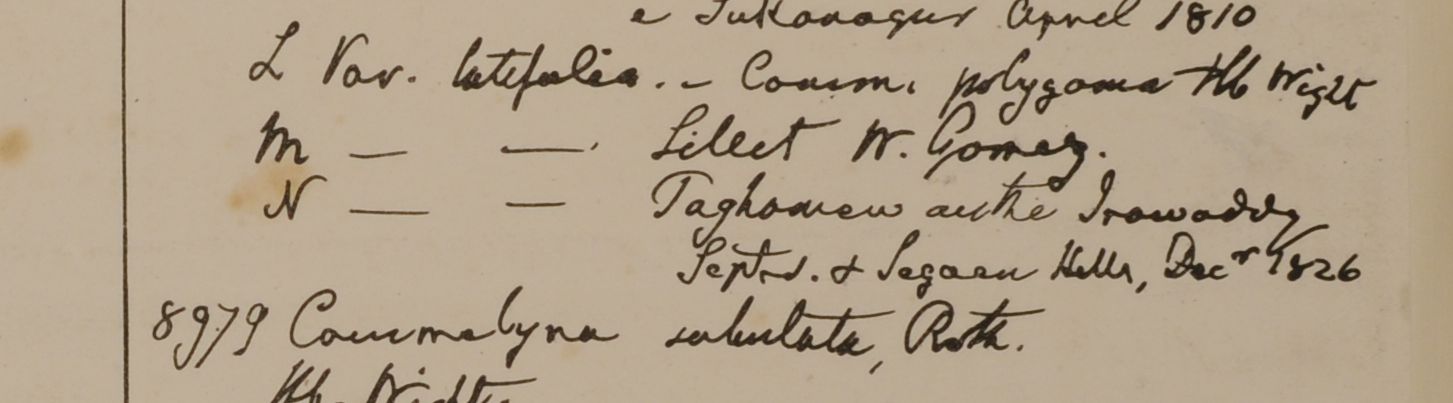 e Sukanagur April 1810
L Var. latifolia. - Comm. polygama Hb Wight
M — — Sillet W. Gomez.
N — — Taghomew au the Irawaddy
Septr. & Segaen Hills, Decr 1826
8979 Commelyna subulata, Roth.
Hb. Wight